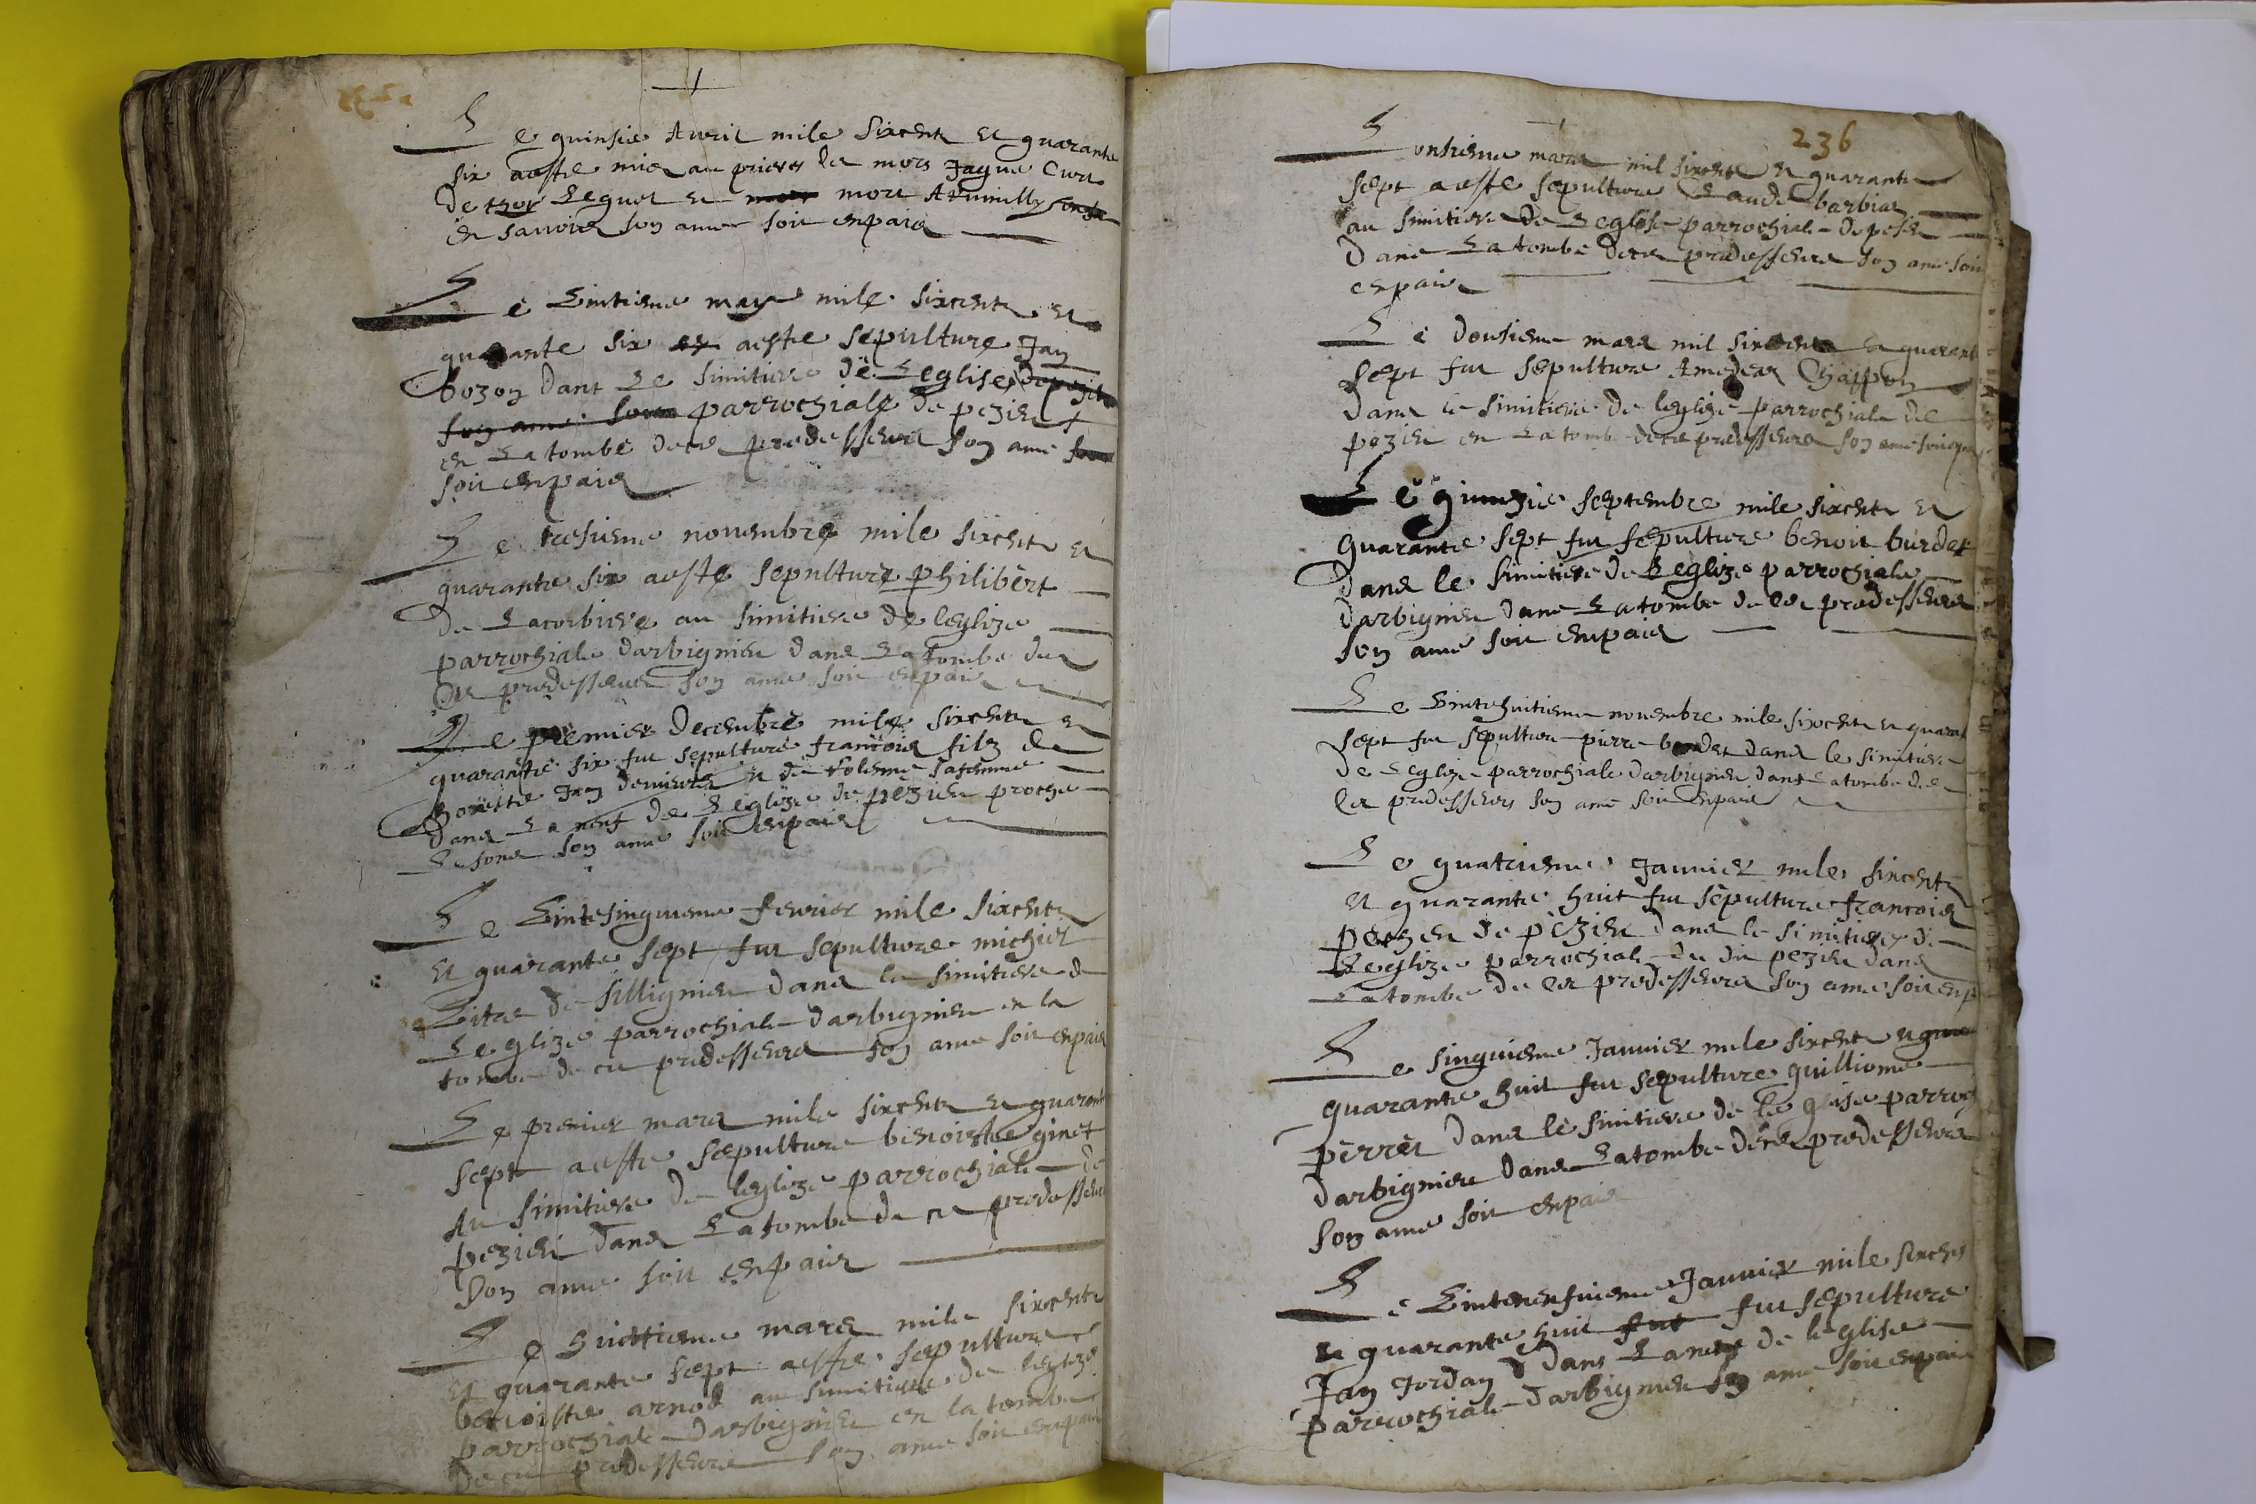 Le quinsie Avril mile sixcent et quarante
six aeste mis au prieres des mors Jaque Curt
de thoy Lequel et mort A
en savoie son ame soit enpaix
Le Vintieme may mile sixcent et
quarante six aeste sepulture Jan
bozon dant Le simitiere de Leglise
son ame soit parrochiale de pezieu
en La tombe de ces predesseurs son ame
soit enpaix
Le tresieme novembre mile sixcent et
quarante six aeste sepulture philibert
de Lacorbiere au simitiere de leglize
parrochiale darbignieu dans La tombe de
ces predesseurs son ame soit enpaix
Le premier decembre mile sixcent et
quarante six fut sepulture francois filz de
honeste Jan et de
dans La nef de Leglize de pezieu proche
Le fons son ame soit enpaix
Le Vintesinquieme fevrier mile sixcent
et quarante sept fut sepulture michiel
de sillignieu dans le simitiere de
Leglize parrochiale darbignieu en la
tombe de ces predesseurs son ame soit enpaix
Le premier mars mile sixcent et quarante
sept aeste sepulture benoiste ginet
Au simitiere de leglize parrochiale de
pezieu dans La tombe de ces predesseurs
Son ame soit enpaix
Le huittieme mars mile sixcent
et quarante sept aeste sepulture
benoiste arnod au simitiere de leglize
parrochiale darbignieu en la tombe
de ces predesseurs son ame soit enpaix
236
L onsieme mars mil sixcent et quarante
sept aeste sepulture Claude barbier
au simitiere de Leglise parrochiale de pesieu
Dans La tombe de ces predesseurs son ame soit
enpaix
Le dousieme mars mil sixcent et quarante
sept fut sepulture Amedee Chappon
dans le simitiere de leglize parrochiale de
pezieu en La tombe de ces predesseurs son ame soit
Le septembre mile sixcent et
quarante sept fut sepulture benoit burdet
dans le simitiere de Leglize parrochiale
darbignieu dans La tombe de ces predesseurs
son ame soit enpaix
Le Vintehuitieme novembre mile sixcent et quarante
sept fut sepulture pierre dans le simitiere
de Leglize parrochiale darbignieu dans La tombe de
ces predesseurs son ame soit enpaix
Le quatrieme Janvier mile sixcent
et quarante huit fut sepulture francois
de pezieu dans le simitiere de
Leglize parrochiale du dit pezieu dans
La tombe de ces predesseurs son ame soit enp
Le sinquieme Janvier mile sixcent et
quarante huit fut sepulture quilliome
perret dans le simitiere de leglise parroch
darbignieu dans La tombe de ces predesseurs
son ame soit enpaix
Le Janvier mile sixcent
et quarante huit fut fut sepulture
Jan Jordan dans La nef de leglise
parrochiale darbignieu son ame soit enpaix